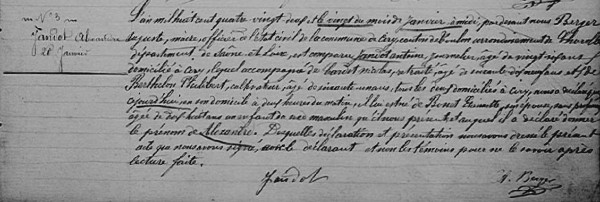 N° 3
Jandot Alexandre
20 Janvier
L'an mil huit cent quatre vingt neuf et le vingt du mois de janvier, à midi, par devant nous Berger
Auguste, maire, officier de l'état civil de la commune de Cery, canton de Toulon, arrondissement de Charolles
département de Saône et Loire, est comparu Jandot antoine, journalier, âgé de vingt six ans
domicilié à Cery, lequel accompagné de nicolas, retraité, âgé de soixante dix neuf ans et de
Berthelon Philibert, cultivateur, âgé de soixante ans, tous les deux domiciliés à Cery, nous a déclaré
aujourd'hui en son domicile à deux heures du matin, il lui est né de Bonnet Pernette, son épouse, sans profession
âgée de dix huit ans un enfant de sexe masculin qu'il nous présente et auquel il a déclaré donner
le prénom de Alexandre. Lesquelles déclaration et présentation nous avons dressé le présent
acte que nous avons signé, avec le déclarant et non les témoins pour ne le savoir après
lecture faite.
Jandot
A. Berger